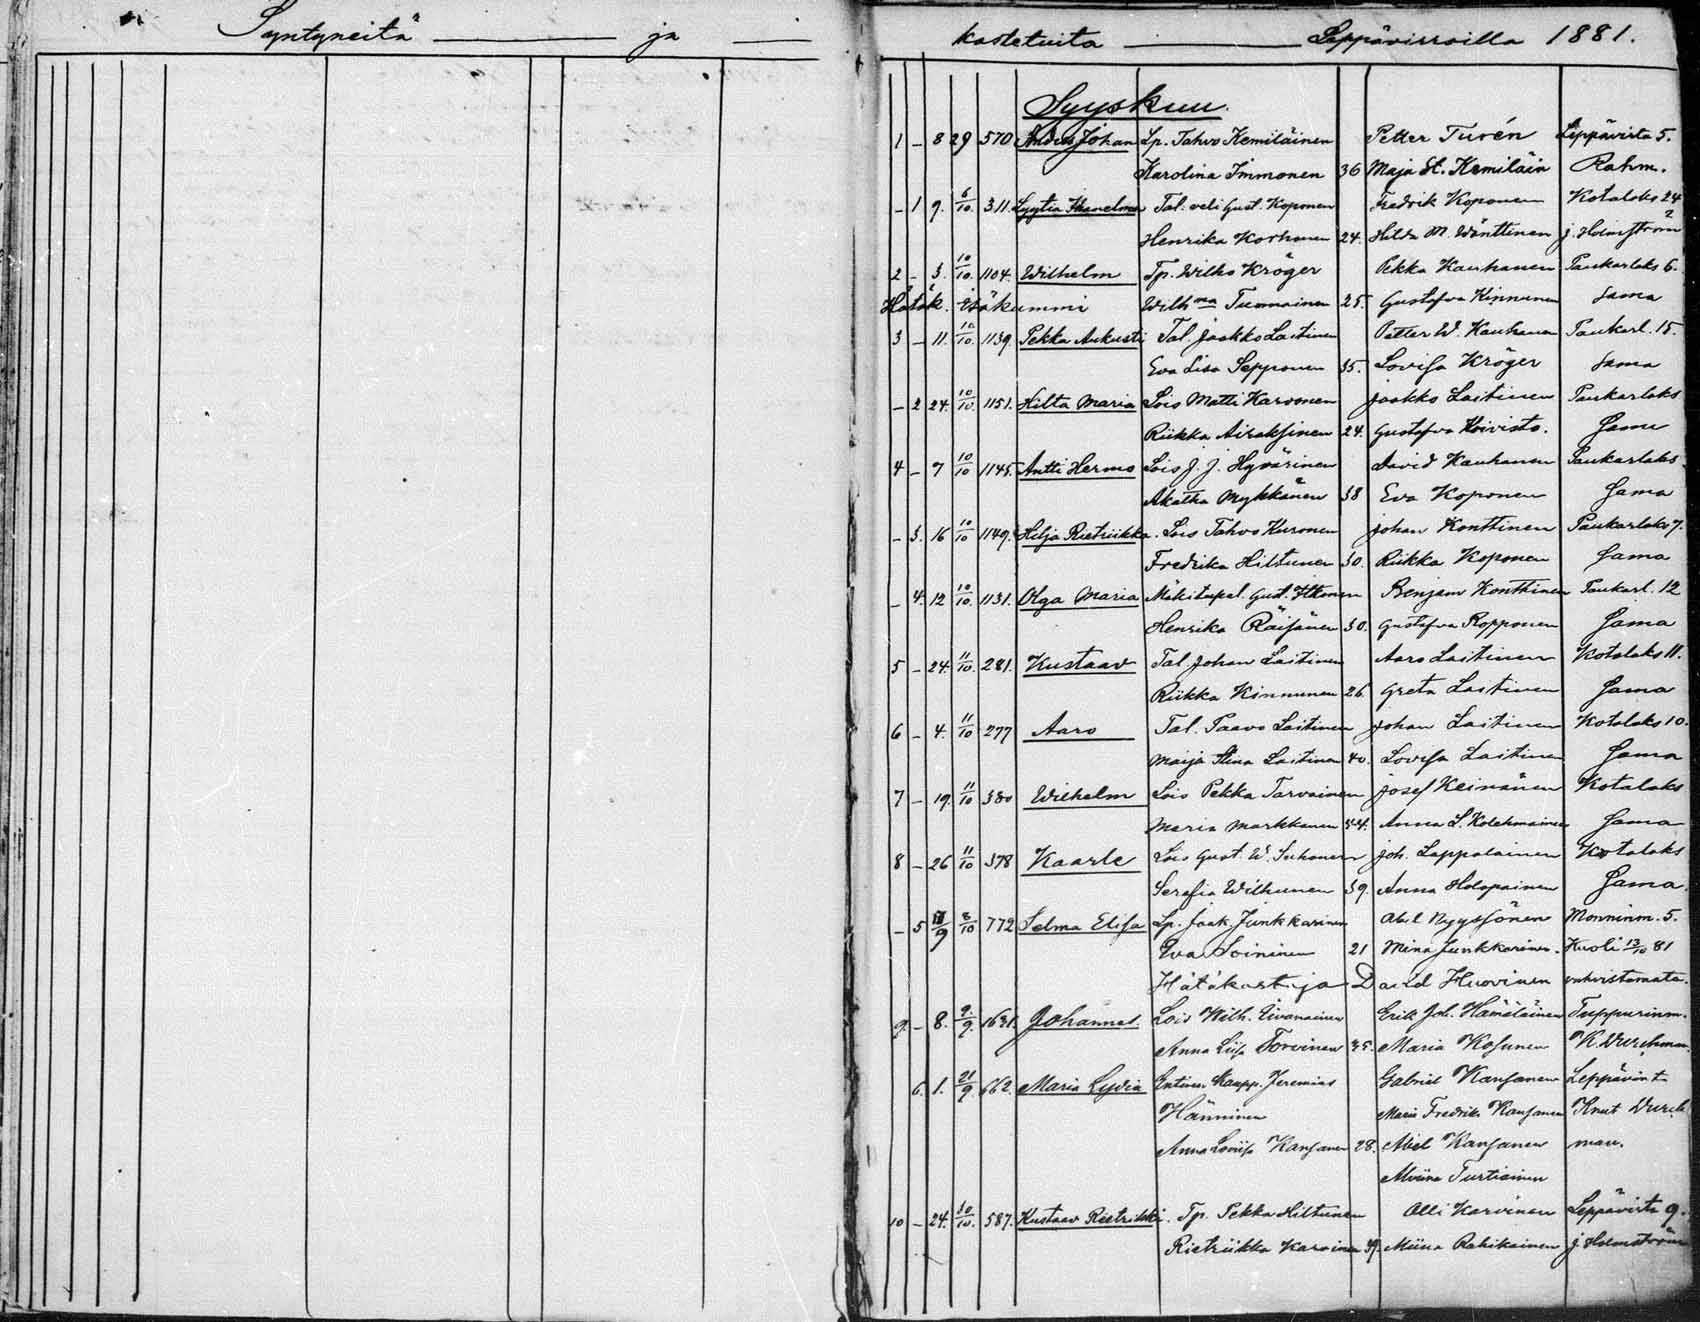 Syntyneitä ja kastetuita Leppävirroilla 1881.
Syyskuu.
1 - 8 29 570 Anders Johan Lp. Tahvo Kemiläinen Petter Turén Leppävirta 5.
Karolina Immonen 36 Maja St. Kemiläin Rahm.
- 1 9. 6/10. 311. Lyytia Tal. veli Gust. Koponen Fredrik Koponen Kotalaks 24
Henrika Korhonen 24. Hilda M. Wänttinen J. Holmström
2 - 3. 10/10. 1104. Wilhelm Tp. Wilho Kröger Pekka Kauhanen Paukarlaks 6.
Hätäk. isäkummi Wilhma Tuomainen 25. Gustafva Kinnunen Sama
3 - 11. 10/10. 1139. Pekka Aukusti Tal. Jaakko Laitinen Petter W. Kauhanen Paukarl. 15.
Eva Lisa Sepponen 35. Lovisa Kröger Sama
- 2 24. 10/10. 1151. Hilta Maria Lois Matti Karvonen Jaakko Laitinen Paukarlaks
Riikka Airaksinen 24. Gustafva Koivisto. Sama
4 - 7 10/10 1145. Antti Hermo Lois J. J. Hyvärinen David Kauhanen Paukarlaks.
Akatha Mykkänen 38 Eva Koponen Sama
- 3. 16 10/10 1149. Hilja Rietriikka. Lois Tahvo Kuronen Johan Konttinen Paukarlaks 7.
Fredrika Hiltunen 30. Riikka Koponen Sama
- 4. 12 10/10. 1131. Olga Maria Mäkitupal. Gust. Itkonen Benjam Konttinen Paukarl. 12
Henrika Räisänen 30. Gustafva Ropponen Sama
5 - 24. 11/10. 281. Kustaav Tal. Johan Laitinen Aaro Laitinen Kotalaks 11.
Riikka Kinnunen 26 Greta Laitinen Sama
6 - 4. 11/10 277 Aaro Tal. Paavo Laitinen Johan Laitinen Kotalaks 10.
Maija Stina Laitinen 40. Lovisa Laitinen Sama
7 - 19. 11/10 380 Wilhelm Lois Pekka Tarvainen Josef Keinänen Kotalaks
Maria Markkanen 44. Anna L. Kolehmainen Sama
8 - 26 11/10 378 Kaarle Lois Gust. W. Suhonen Joh. Lappalainen Kotalaks
Serafia Wilhunen 39. Anna Holopainen Sama.
- 5 /9 8/10 772 Selma Elisa Lp. Jaak. Junkkarinen Abel Nyyssönen Monninm. 5.
Eva Soininen 21 Mina Junkkarinen. Kuoli 13/10 81
Hätäkastaja David Huovinen vahvistamata.
9. - 8. 9./9. 1631. Johannes. Lois Wilh. Eivanainen Erik Joh. Hämäläinen Tuppurinm.
Anna Liisa Torvinen 35. Maria Kosunen K. Durchman.
6. 1. 21/9 662. Maria Lydia Entinen Kaupp. Jeremias Gabriel Kansanen Leppävirt
Hänninen Maria Fredrika Kansanen Knut Durch
Anna Loviisa Kansanen 28. Abel Kansanen man.
Miina Turtiainen
10 - 24. 30/10. 587. Kustaav Rietrikki. Tp. Pekka Hiltunen Olli Karvinen Leppävirta 9.
Rietriikka Karvinen 39. Miina Rahikainen J. Holmström